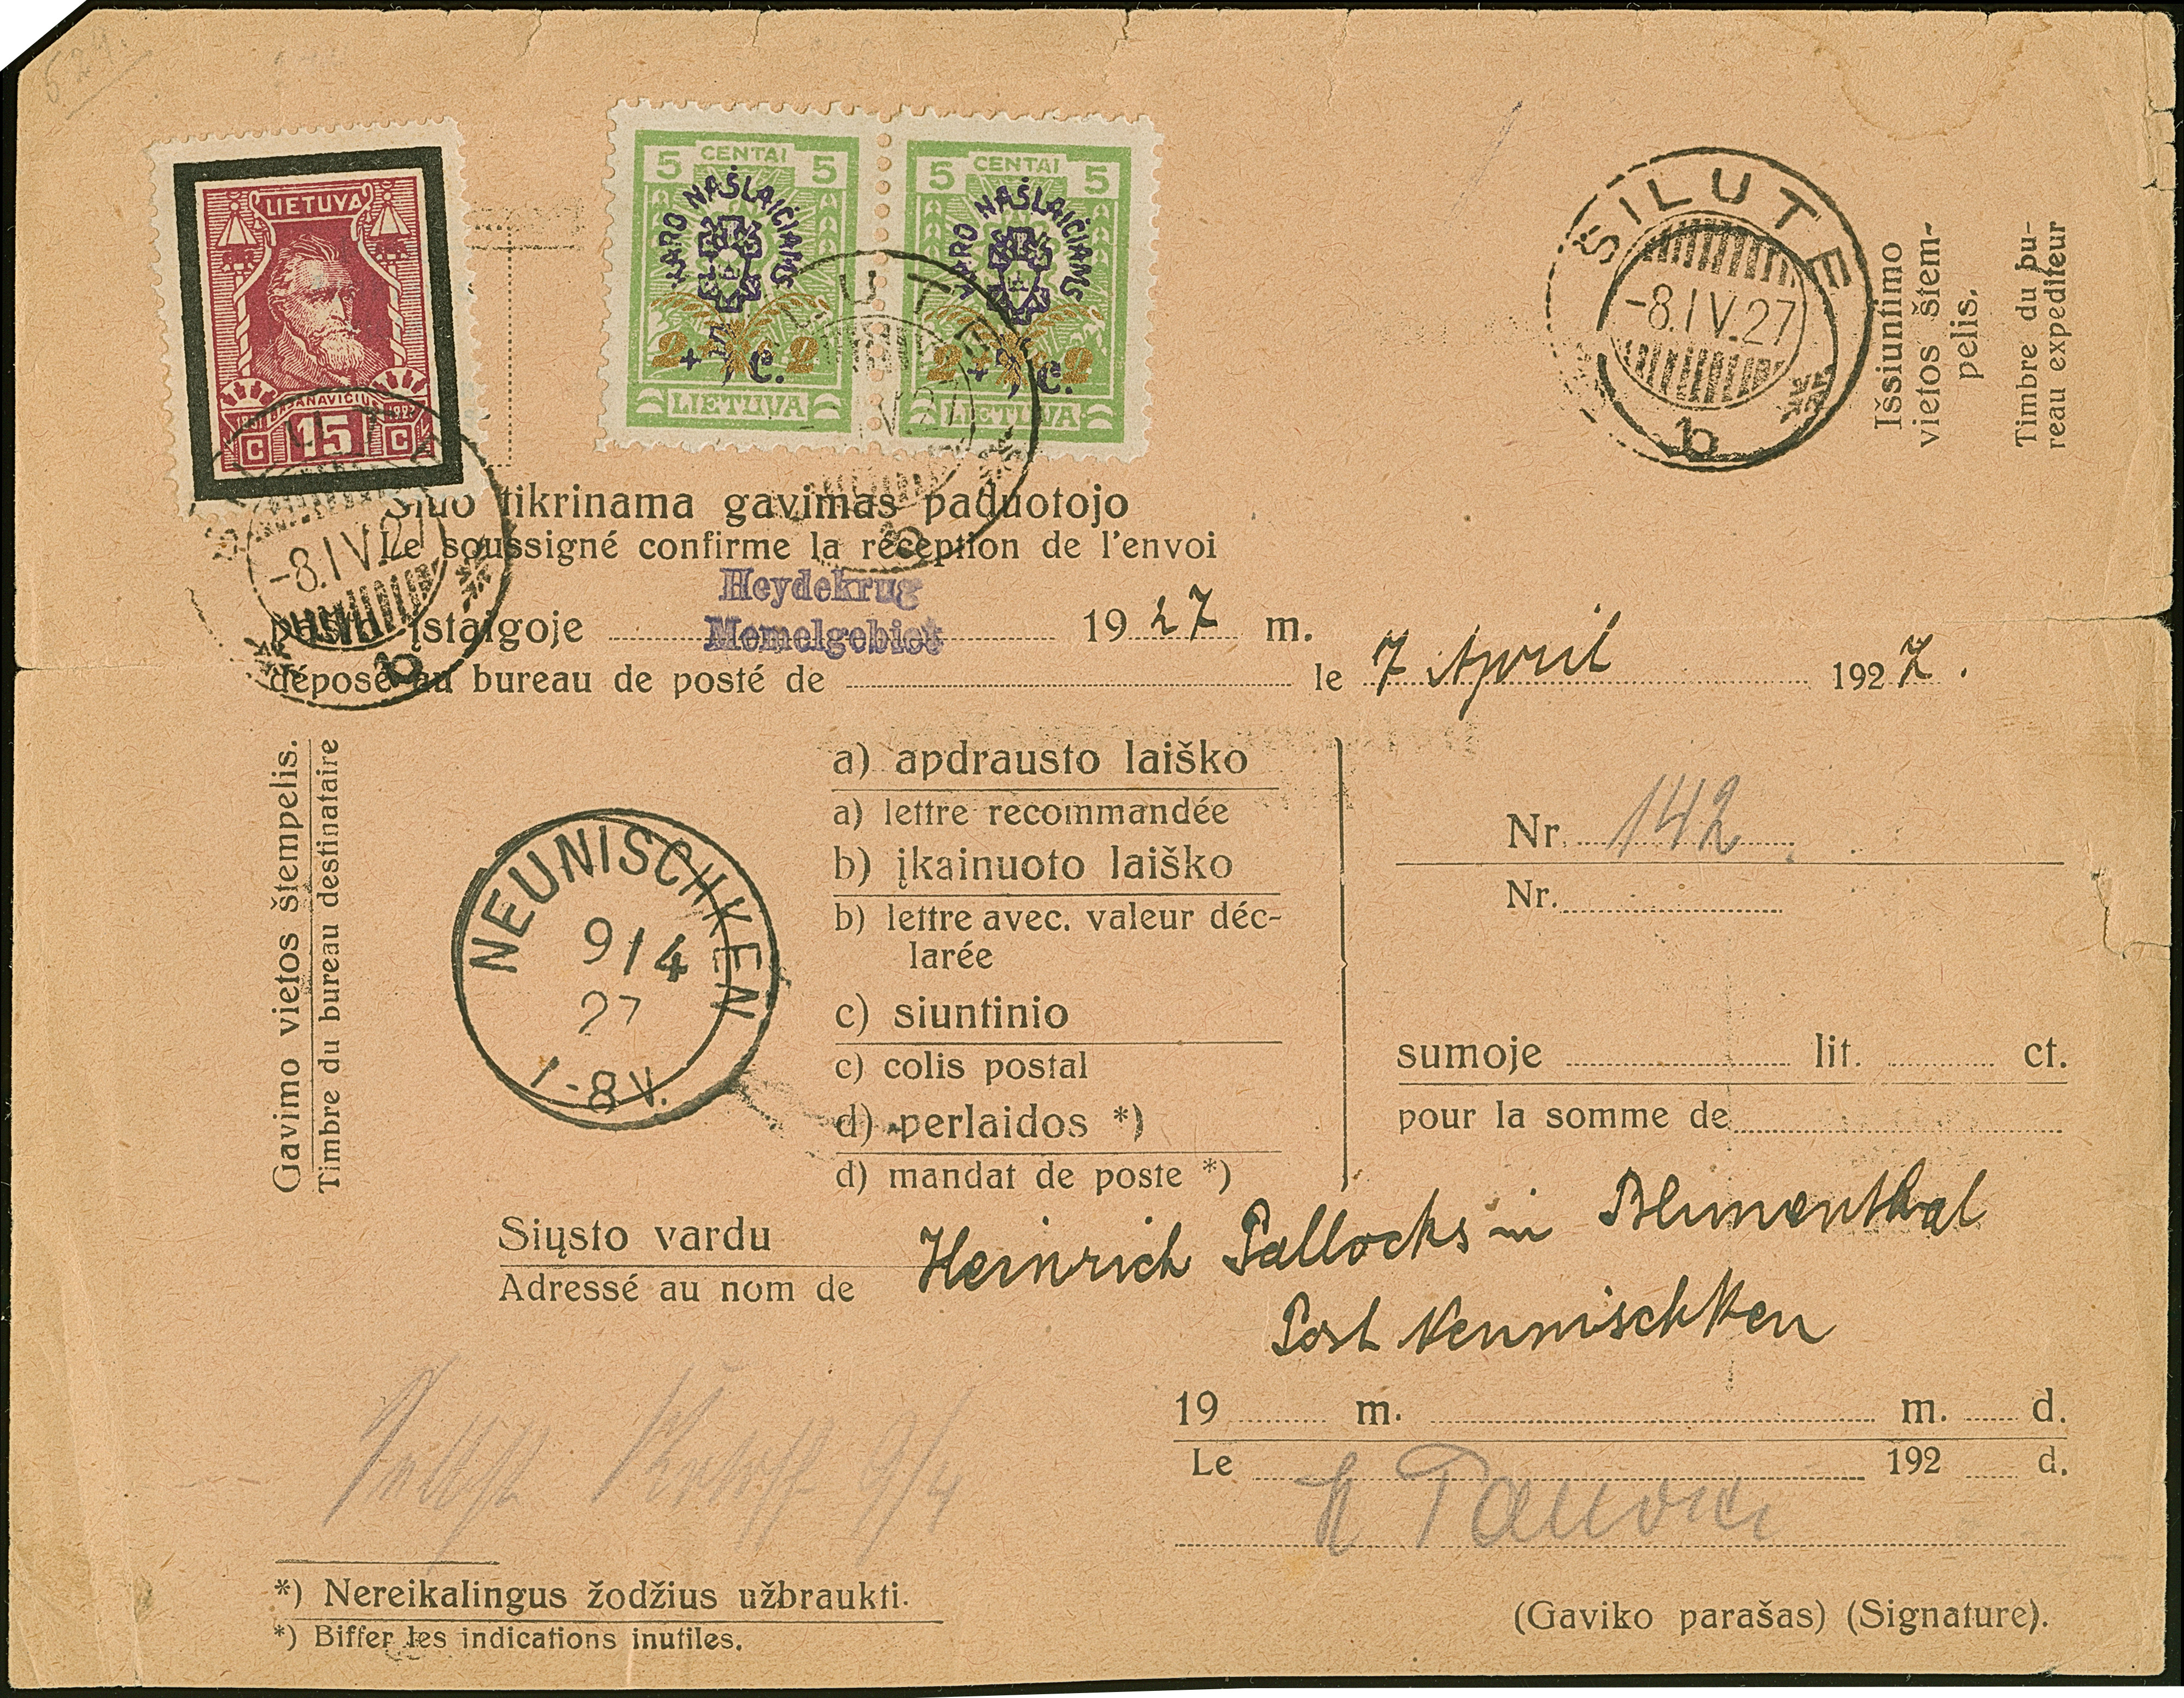 LIETUVA
BASANAVIČIUS
C 15 C
5 CENTAI 5
KARO NAŠLAIČIAMS
2 + C. 2
LIETUVA
5 CENTAI 5
KARO NAŠLAIČIAMS
2 + C. 2
LIETUVA
ŠILUTE
-8.IV.27
b
Išsiuntimo
vietos štem-
pelis.
Timbre du bu-
reau expediteur
-8.IV.27
b
Šiuo tikrinama gavimas paduotojo
Le soussigné confirme la réception de l'envoi
Heydekrug
Memelgebiet
pašto įstaigoje 1927 m.
déposé au bureau de posté de le 7 April 1927.
Gavimo vietos štempelis.
Timbre du bureau destinataire
NEUNISCHKEN
9/4
27
7-8 V.
a) apdrausto laiško
a) lettre recommandée
b) įkainuoto laiško
b) lettre avec. valeur déc-
larée
c) siuntinio
c) colis postal
d) perlaidos *)
d) mandat de poste *)
Nr. 142
Nr.
sumoje lit. ct.
pour la somme de
Siųsto vardu
Adressé au nom de
Heinrich Pallocks in Blumenthal
Post Neunischken
19 m. m. d.
Le 192 d.
9/4
*) Nereikalingus žodžius užbraukti.
*) Biffer les indications inutiles.
(Gaviko parašas) (Signature).